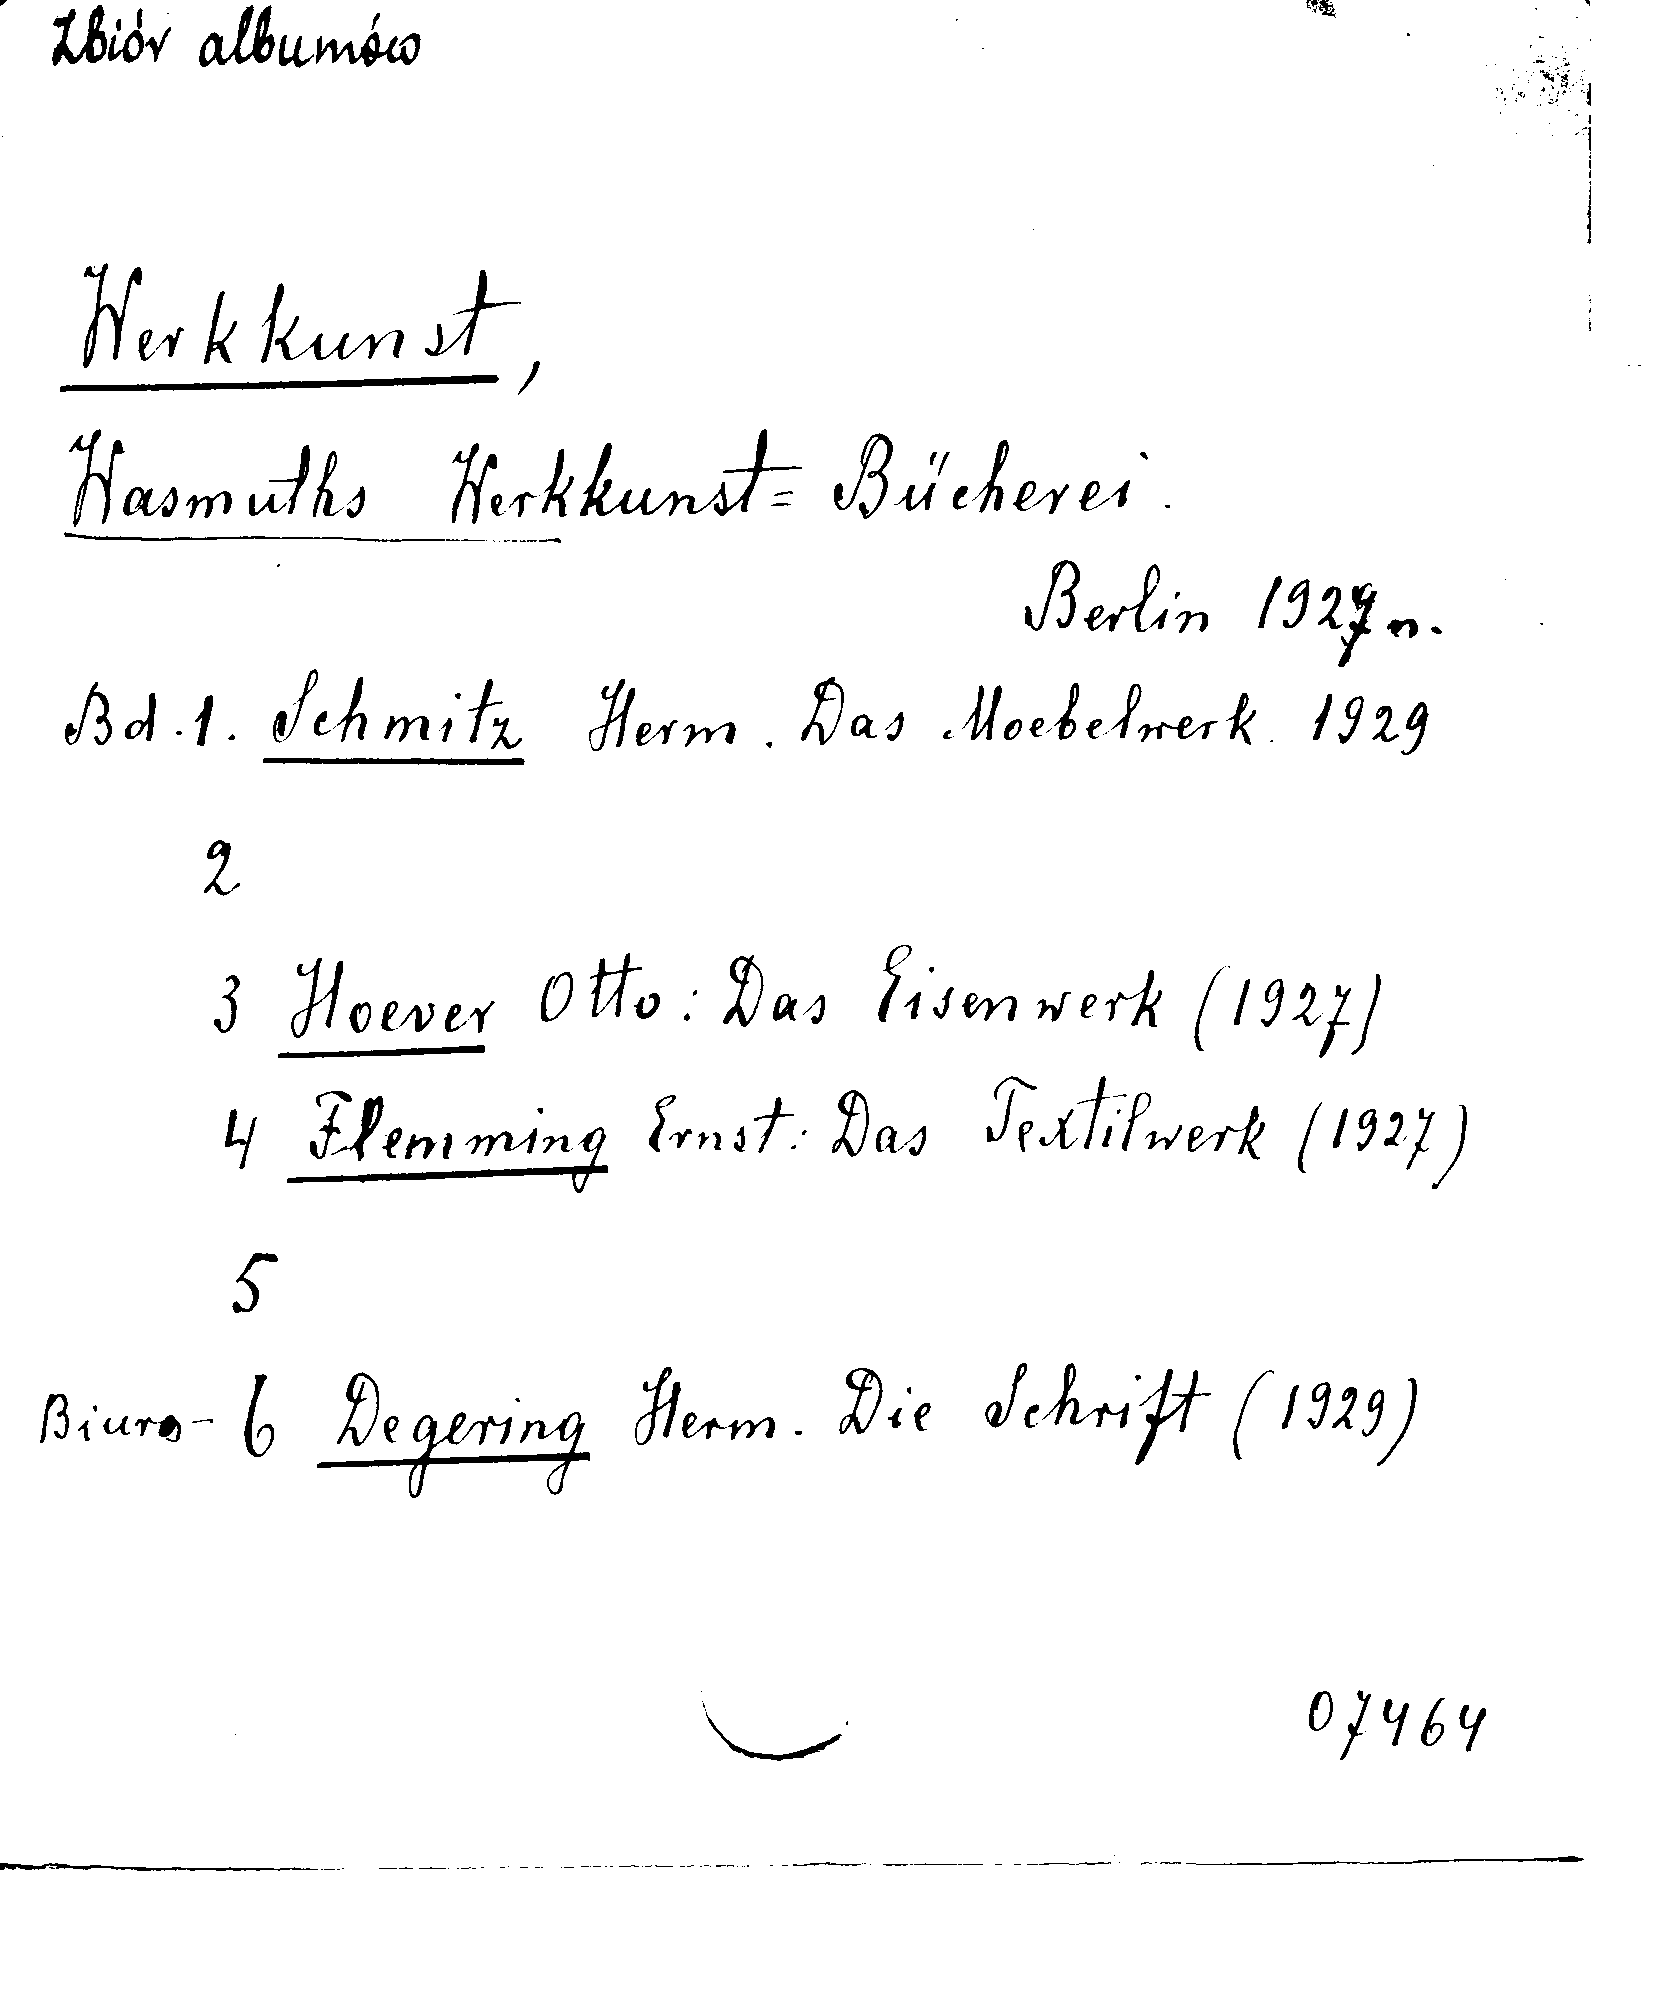 Zbiór albumów
Werkkunst,
Wasmuths Werkkunst= Bücherei.
Berlin 1927 n.
Bd. 1. Schmitz Herm. Das Moebelwerk. 1929
2
3 Hoever Otto: Das Eisenwerk (1927)
4 Flemming Ernst: Das Textilwerk (1927)
5
Biuro - 6 Degering Herm. Die Schrift (1929)
07464